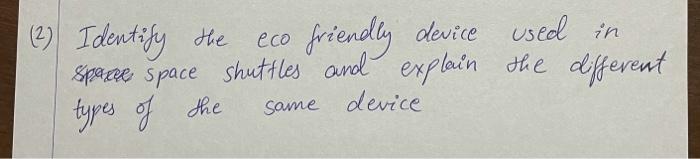 (2) Identify the eco friendly device used in
space shuttles and explain the different
types of the same device